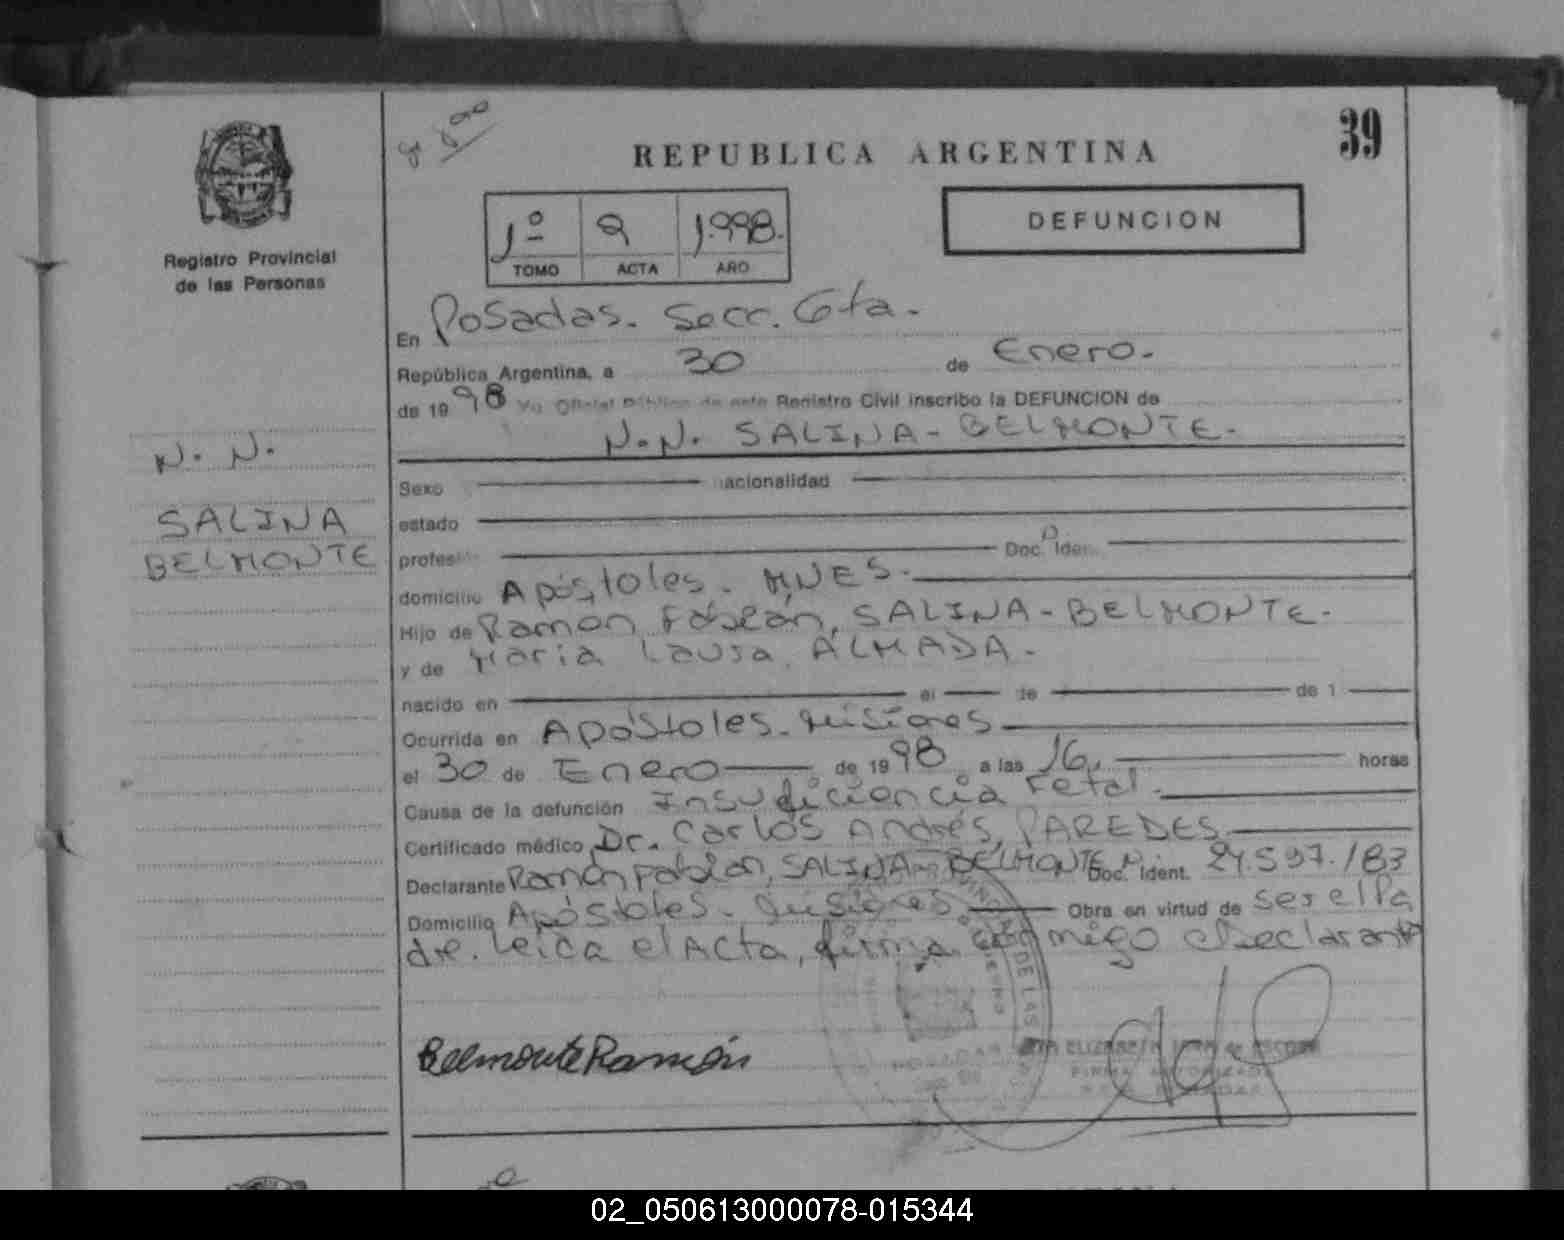 39
REPUBLICA ARGENTINA
Registro Provincial
de las Personas
1º 2 1.998.
TOMO ACTA AÑO
DEFUNCION
En Posadas. Secc. 6ta.
República Argentina, a 30 de Enero.
de 1998 Yo Oficial Público de este Registro Civil inscribo la DEFUNCION de
N.N. SALINA - BELMONTE.
N. N.
SALINA
BELMONTE
Sexo nacionalidad
estado
profesión Doc. Iden.
domicilio Apóstoles. MNES.
Hijo de Ramón Fabián, SALINA - BELMONTE.
y de María Laura, ALMADA.
nacido en el de de 1
Ocurrida en Apóstoles. Misiones
el 30 de Enero de 1998 a las 16, horas
Causa de la defunción Insuficiencia Fetal.
Certificado médico Dr. Carlos Andrés, PAREDES
Declarante Ramón Fabián, SALINA - BELMONTE Doc. Ident. 24.597./83
Domicilio Apóstoles. Misiones Obra en virtud de ser el Pa
dre. Leída el Acta, firma conmigo el declarante
Belmonte Ramón
ELIZABETH de ESCOBAR
FIRMA AUTORIZADA
POSADAS
02_050613000078-015344